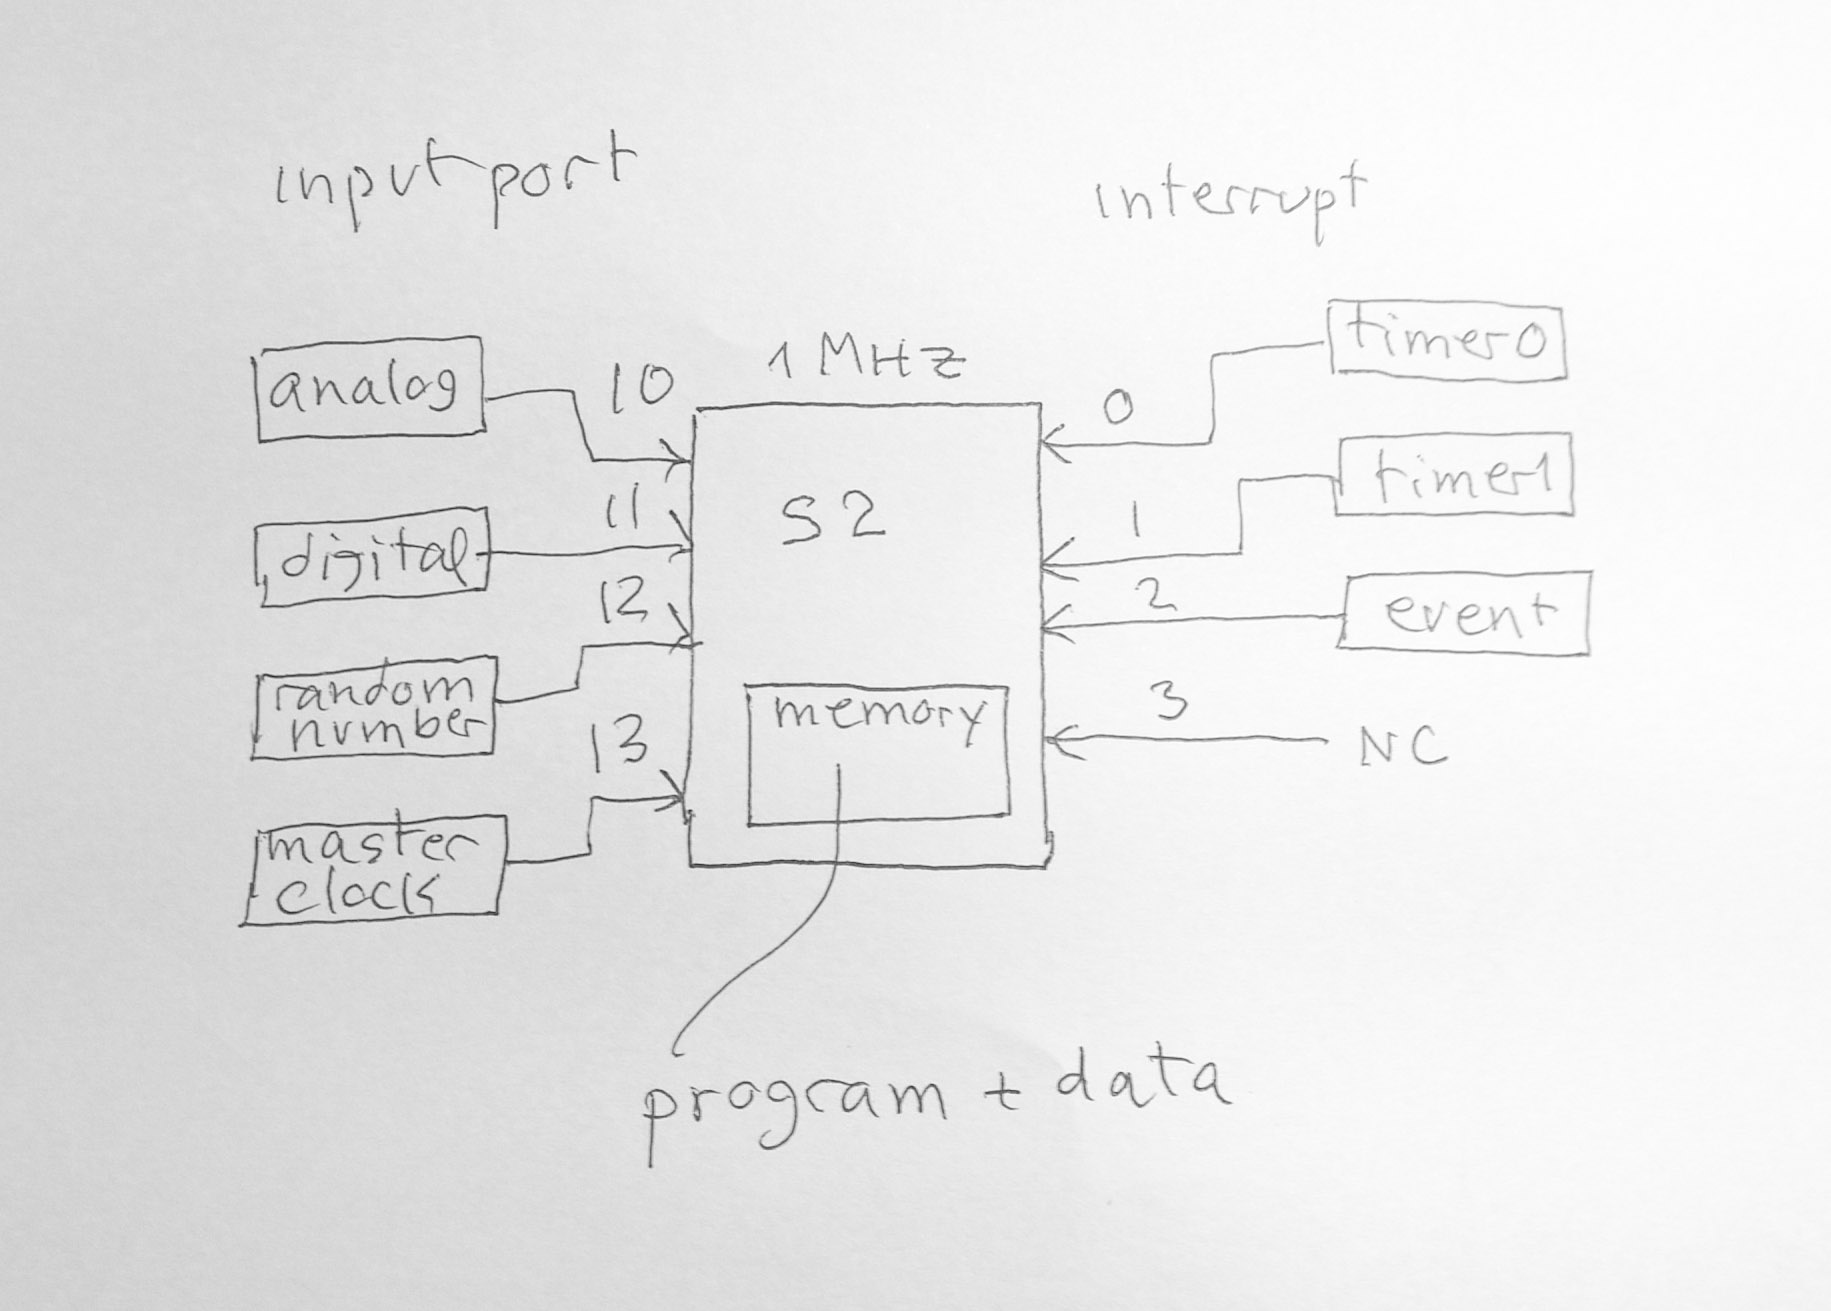 input port
interrupt
1 MHz
analog
10
0
timer0
S2
digital
11
1
timer1
random
number
12
2
event
memory
master
clock
13
3
NC
program + data